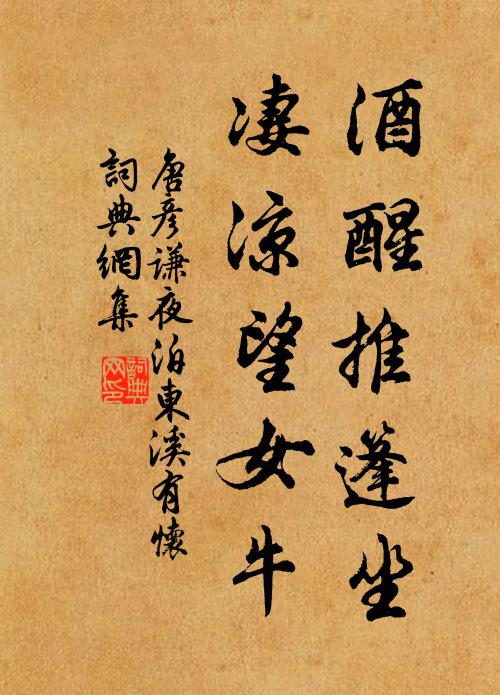 酒醒推蓬坐
凄涼望女牛
唐彥謙夜泊東溪有懷
詞典網集
詞典網印